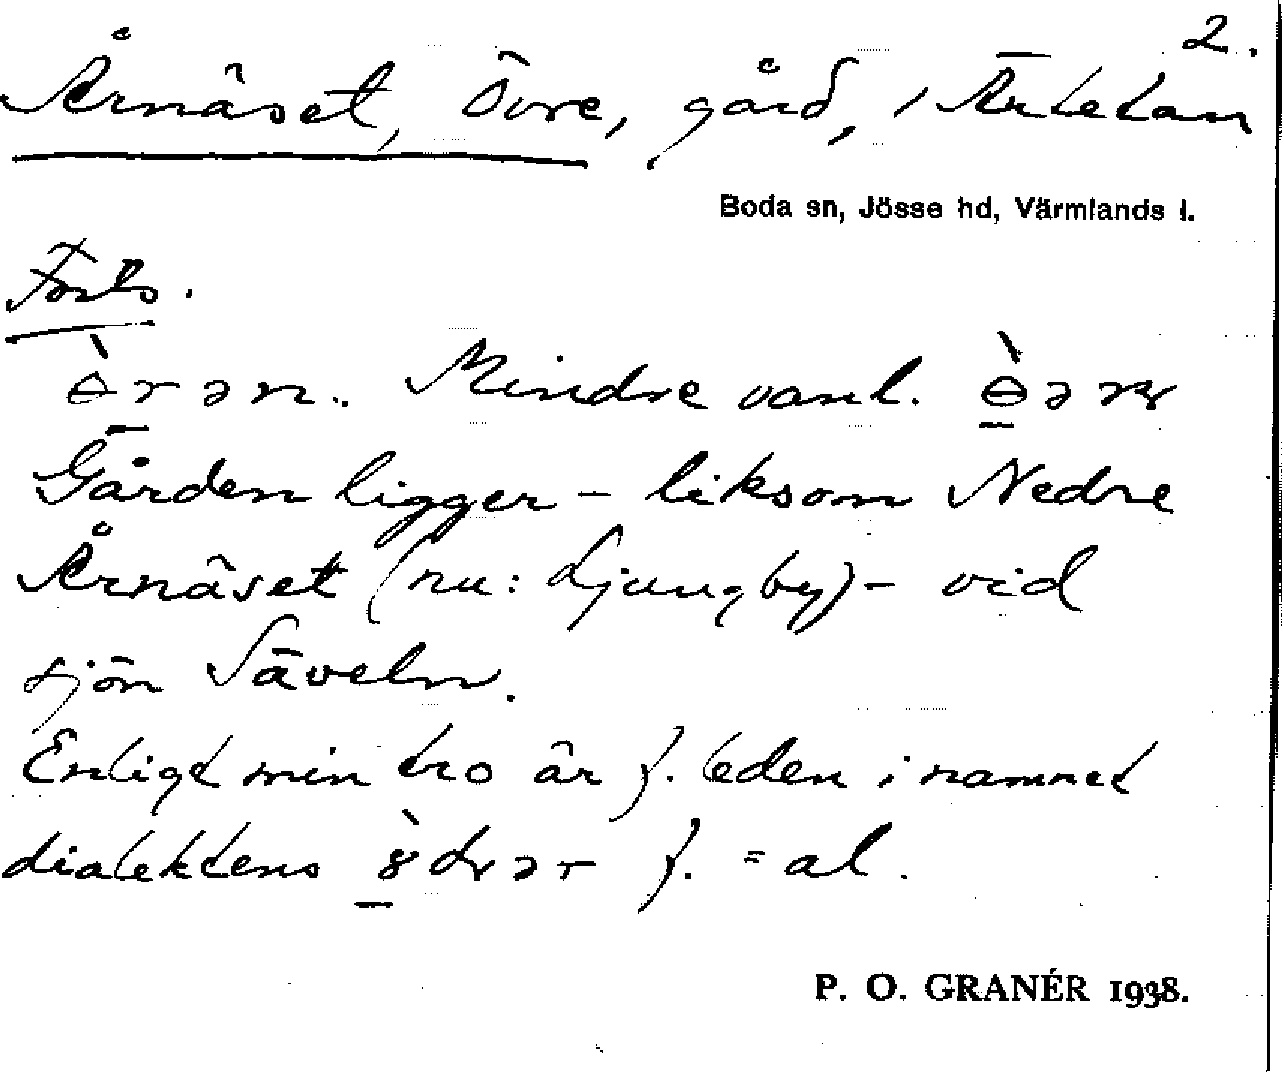 2.
Årnäset, Övre, gård, i Ärtetan
Boda sn, Jösse hd, Värmlands l.
Forts.
Mindre vanl.
Gården ligger – liksom Nedre
Årnäset (nu: Ljungby) – vid
sjön Säveln.
Enligt min tro är f. leden i namnet
dialektens f. = al.
P. O. GRANÉR 1938.